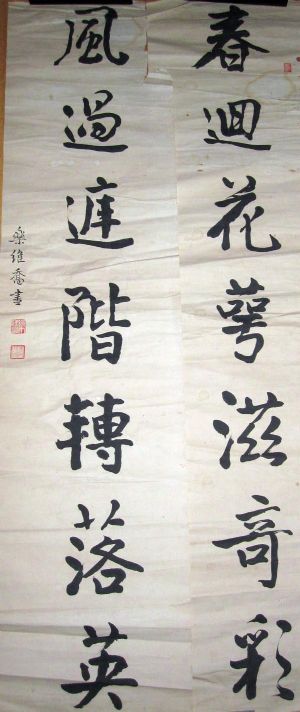 春迴花萼滋奇彩
風過庭階轉落英
維喬書